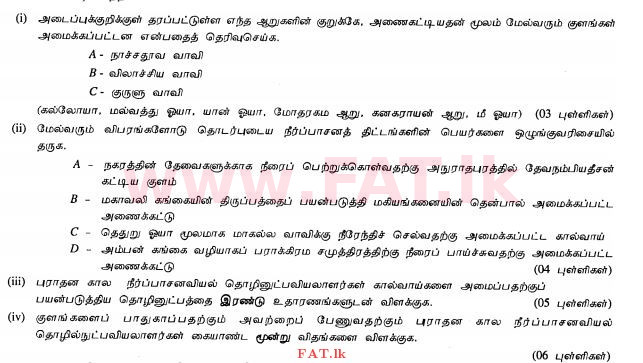 (i) அடைப்புக்குறிக்குள் தரப்பட்டுள்ள எந்த ஆறுகளின் குறுக்கே, அணைகட்டியதன் மூலம் மேல்வரும் குளங்கள்
அமைக்கப்பட்டன என்பதைத் தெரிவுசெய்க.
A - நாச்சதூவ வாவி
B - விலாச்சிய வாவி
C - குருளு வாவி
(கல்லோயா, மல்வத்து ஓயா, யான் ஓயா, மோதரகம ஆறு, கனகராயன் ஆறு, மீ ஓயா) (03 புள்ளிகள்)
(ii) மேல்வரும் விபரங்களோடு தொடர்புடைய நீர்ப்பாசனத் திட்டங்களின் பெயர்களை ஒழுங்குவரிசையில்
தருக.
A – நகரத்தின் தேவைகளுக்காக நீரைப் பெற்றுக்கொள்வதற்கு அநுராதபுரத்தில் தேவநம்பியதீசன்
கட்டிய குளம்
B – மகாவலி கங்கையின் திருப்பத்தைப் பயன்படுத்தி மகியங்கனையின் தென்பால் அமைக்கப்பட்ட
அணைக்கட்டு
C – தெதுறு ஓயா மூலமாக மாகல்ல வாவிக்கு நீரேந்திச் செல்வதற்கு அமைக்கப்பட்ட கால்வாய்
D – அம்பன் கங்கை வழியாகப் பராக்கிரம சமுத்திரத்திற்கு நீரைப் பாய்ச்சுவதற்கு அமைக்கப்பட்ட
அணைக்கட்டு (04 புள்ளிகள்)
(iii) புராதன கால நீர்ப்பாசனவியல் தொழினுட்பவியலாளர்கள் கால்வாய்களை அமைப்பதற்குப்
பயன்படுத்திய தொழினுட்பத்தை இரண்டு உதாரணங்களுடன் விளக்குக. (05 புள்ளிகள்)
(iv) குளங்களைப் பாதுகாப்பதற்கும் அவற்றைப் பேணுவதற்கும் புராதன கால நீர்ப்பாசனவியல்
தொழில்நுட்பவியலாளர்கள் கையாண்ட மூன்று விதங்களை விளக்குக.
(06 புள்ளிகள்)
www.FAT.lk
FAT.lk